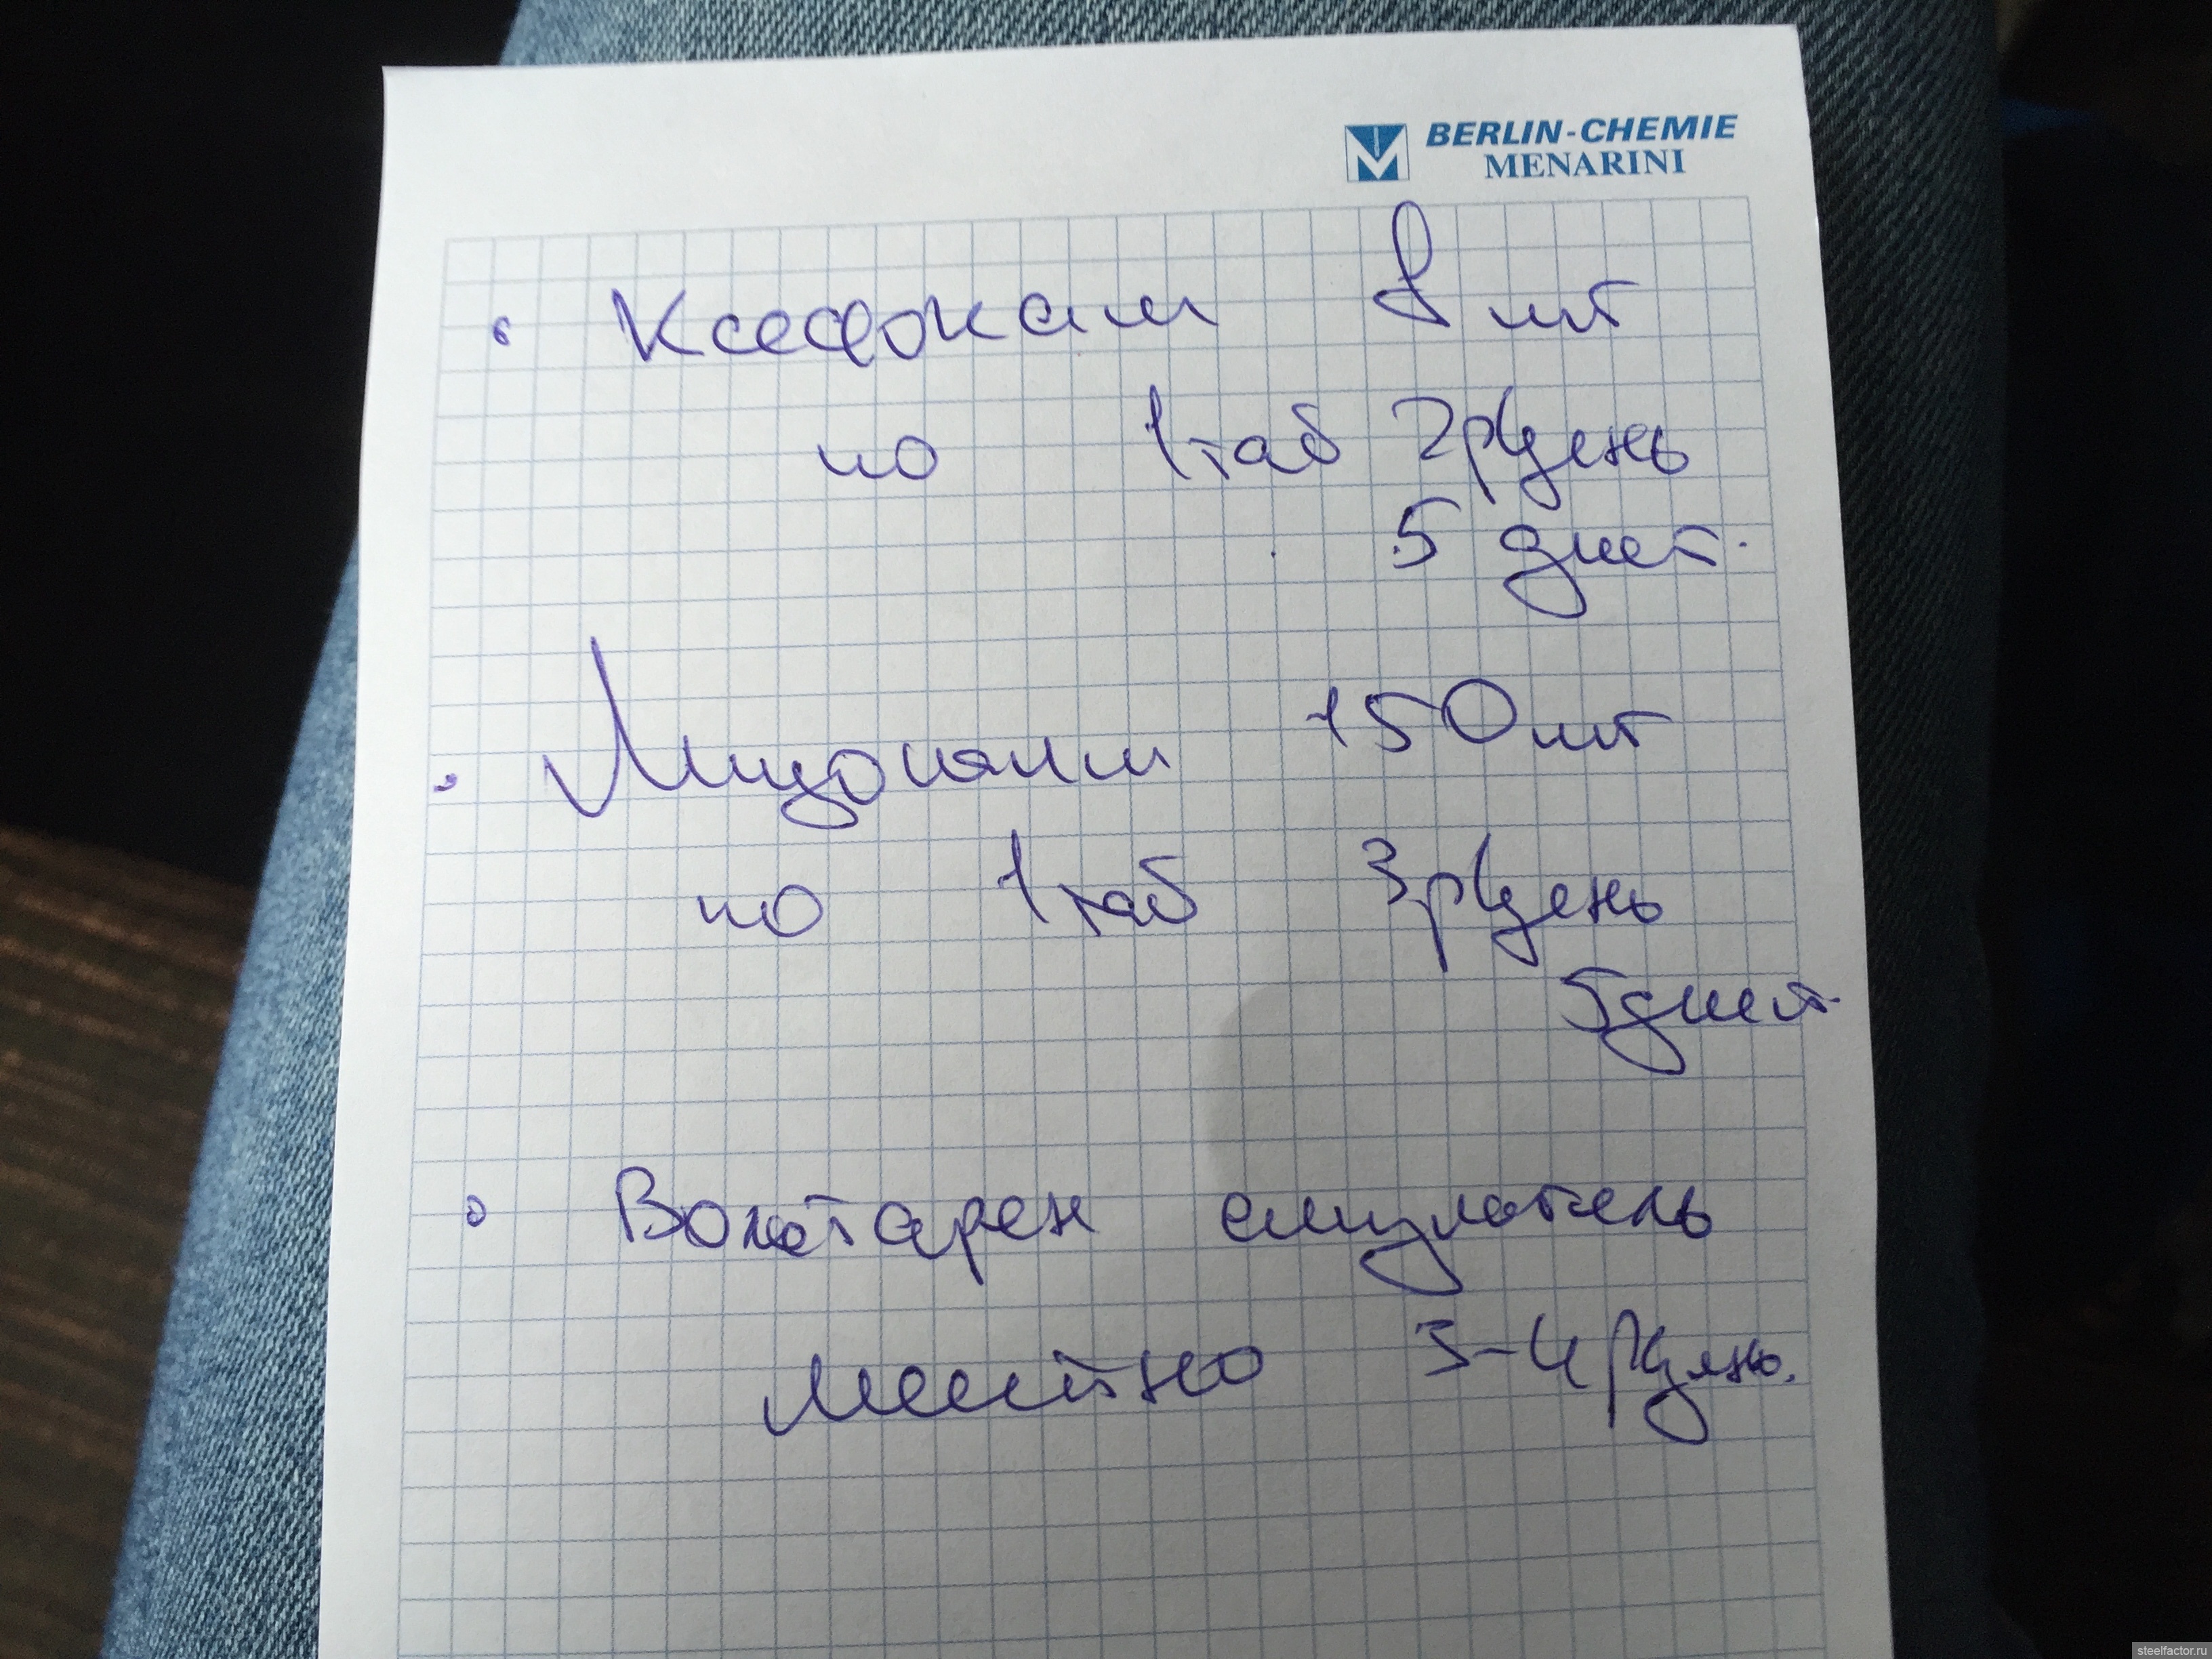 BERLIN-CHEMIE
MENARINI
• Ксефокам 8 мг
по 1 таб 2р/день
5 дней.
• Мидокалм 150 мг
по 1 таб 3р/день
5 дней.
• Вольтарен эмульгель
местно 3-4 р/день.
steelfactor.ru